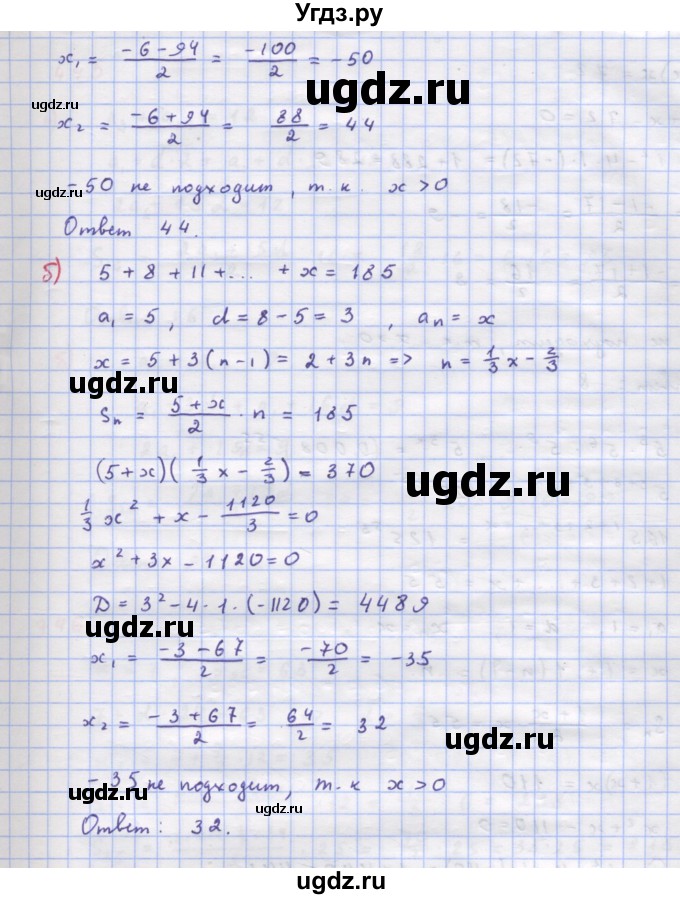 Угдз.ру
x₁ = (-6-94)/2 = -100/2 = -50
ugdz.ru ugdz.ru
x₂ = (-6+94)/2 = 88/2 = 44
ugdz.ru
-50 не подходит, т.к. x > 0
Ответ 44.
б) 5 + 8 + 11 + ... + x = 185
a₁ = 5, d = 8 - 5 = 3, aₙ = x
x = 5 + 3(n-1) = 2 + 3n => n = 1/3 x - 2/3
ugdz.ru
Sₙ = (5+x)/2 · n = 185
(5+x)(1/3 x - 2/3) = 370
ugdz.ru
1/3 x² + x - 1120/3 = 0
x² + 3x - 1120 = 0
D = 3² - 4·1·(-1120) = 4489
ugdz.ru
x₁ = (-3-67)/2 = -70/2 = -35
x₂ = (-3+67)/2 = 64/2 = 32
ugdz.ru
-35 не подходит, т.к x > 0
ugdz.ru ugdz.ru
Ответ: 32.
ugdz.ru